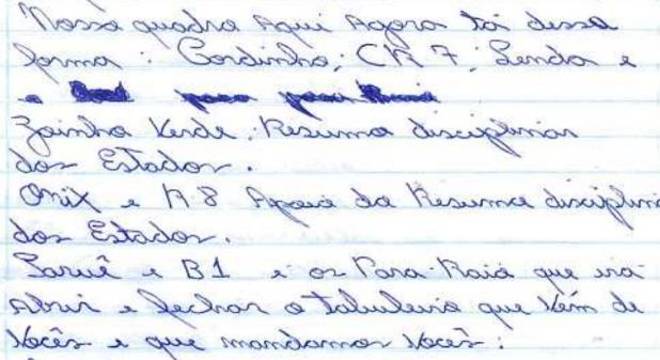 Nosso quadro Aqui Agora tá dessa
forma: Gordinho; CR7; Lenda e
Zoinho Verde. Resumo disciplinar
dos Estados.
Onix e R.8 Apoio do Resumo disciplina
dos Estados.
Saruê e B1 é os Para-Raio que irá
Abrir e fechar o tabuleiro que Vem de
Vocês e que mandamos Vocês: